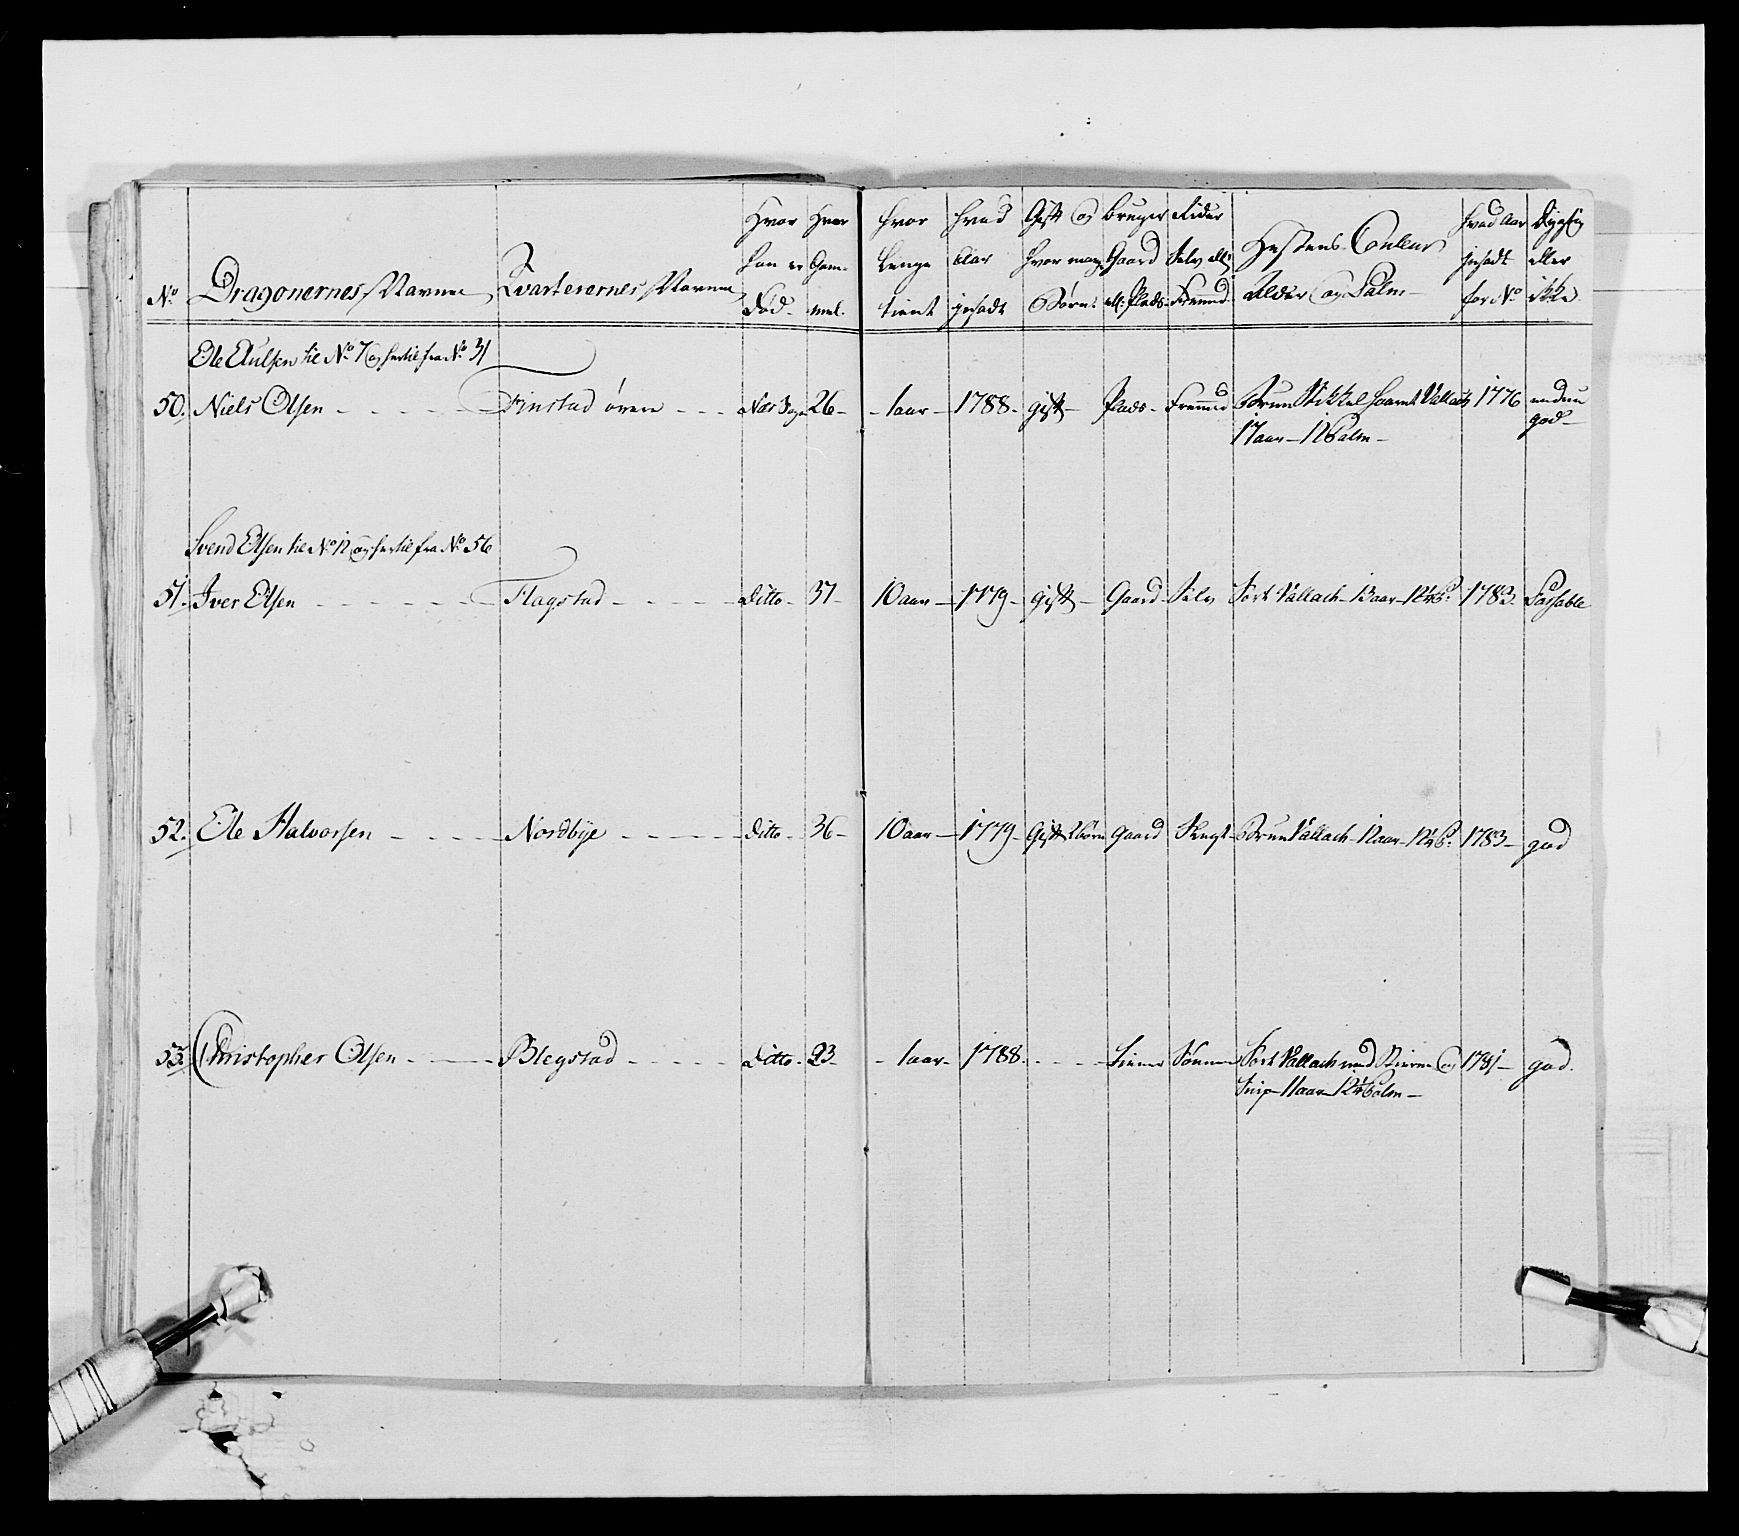 No. Dragonernes Navne Kvarterernes Navne Hvor han er Fød. Hvor Gam- mel. hvor Lenge tient hvad Aar Gift og hvor mange Børn Bruger Gaard ell: Plads Rider Selv ell: Fremmed Hestens Couleur Alder og Palm hvad Aar for No. Dygtig eller ikke
Ole Aulsen til No. 7 og hertil fra No. 31
50. Niels Olsen Finstad øvre 26 1 aar 1788 gift Plads Fremmed Brun Vallach 1776 endnu
17 aar 12 Palm god
Svend Olsen til No. 12 og hertil fra No. 56
51. Iver Olsen Flagstad Ditto 37 10 aar 1779 gift Gaard Selv Sort Vallach 13 aar 12½ P. 1783 Passable
52. Ole Halvorsen Nordbye Ditto 36 10 aar 1779 Gift 2 børn Gaard Knegt Brun Vallach 12 aar 12½ P. 1783 god
53. Christopher Olsen Blegstad Ditto 23 1 aar 1788 Tiener Sort Vallach med Stierne og 1781 god.
Snip 11 aar 12½ Palm